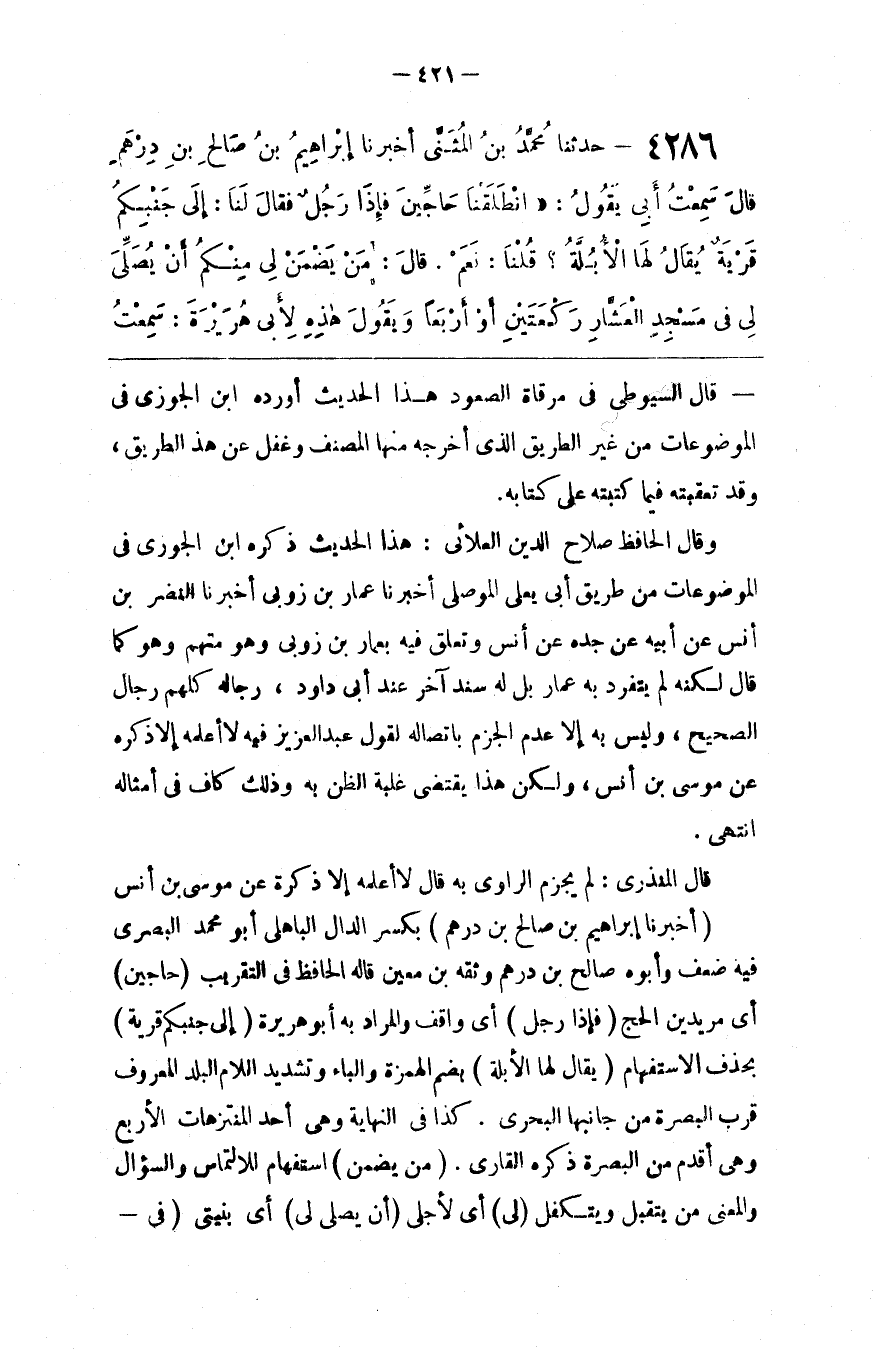 — ٤٢١ —
٤٢٨٦ — حدثنا مُحمَّدُ بنُ المُثَنَّى أخبرنا إبْرَاهِيمُ بنُ صَالحِ بنِ دِرْهَمٍ
قالَ سَمِعْتُ أَبِي يَقُولُ : « انْطَلَقْنَا حَاجِّينَ فإِذَا رَجُلٌ فقالَ لَنَا : إلَى جَنْبِكُمْ
قَرْيَةٌ يُقَالُ لَهَا الْأُبُلَّةُ ؟ قُلْنَا : نَعَمْ . قالَ : مَنْ يَضْمَنُ لِي مِنْكُم أَنْ يُصَلِّيَ
لِي فى مَسْجِدِ الْعَشَّارِ رَكْعَتَيْنِ أَوْ أَرْبَعاً وَيَقُولَ هٰذِهِ لِأَبِي هُرَيْرَةَ : سَمِعْتُ
— قال السيوطى فى مرقاة الصعود هـذا الحديث أورده ابن الجوزى فى
الموضوعات من غير الطريق الذى أخرجه منها المصنف وغفل عن هذ الطريق ،
وقد تعقبته فيما كتبته على كتابه .
وقال الحافظ صلاح الدين العلائى : هذا الحديث ذكره ابن الجوزى فى
الموضوعات من طريق أبى يعلى الموصلى أخبرنا عمار بن زوبى أخبرنا النضر بن
أنس عن أبيه عن جده عن أنس وتعلق فيه بعمار بن زوبى وهو متهم وهو كما
قال لـكنه لم يتفرد به عمار بل له سند آخر عند أبى داود ، رجاله كلهم رجال
الصحيح ، وليس به إلا عدم الجزم باتصاله لقول عبدالعزيز فيه لاأعلمه إلاذكره
عن موسى بن أنس ، ولـكن هذا يقتضى غلبة الظن به وذلك كاف فى أمثاله
انتهى .
قال المنذرى : لم يجزم الراوى به قال لاأعلمه إلا ذكرة عن موسى بن أنس
( أخبرنا إبراهيم بن صالح بن درهم ) بكسر الدال الباهلى أبو محمد البصرى
فيه ضعف وأبوه صالح بن درهم وثقه بن معين قاله الحافظ فى التقريب ( حاجين )
أى مريدين الحج ( فإذا رجل ) أى واقف والمراد به أبوهريرة ( إلى جنبكم قرية )
بحذف الاستفهام ( يقال لها الأبلة ) بضم الهمزة والباء وتشديد اللام البلد المعروف
قرب البصرة من جانبها البحرى . كذا فى النهاية وهى أحد المنتزهات الأربع
وهى أقدم من البصرة ذكره القارى . ( من يضمن ) استفهام للالتماس والسؤال
والمعنى من يتقبل ويتـكفل ( لى ) أى لأجلى ( أن يصلى لى ) أى بنيتى ( فى —